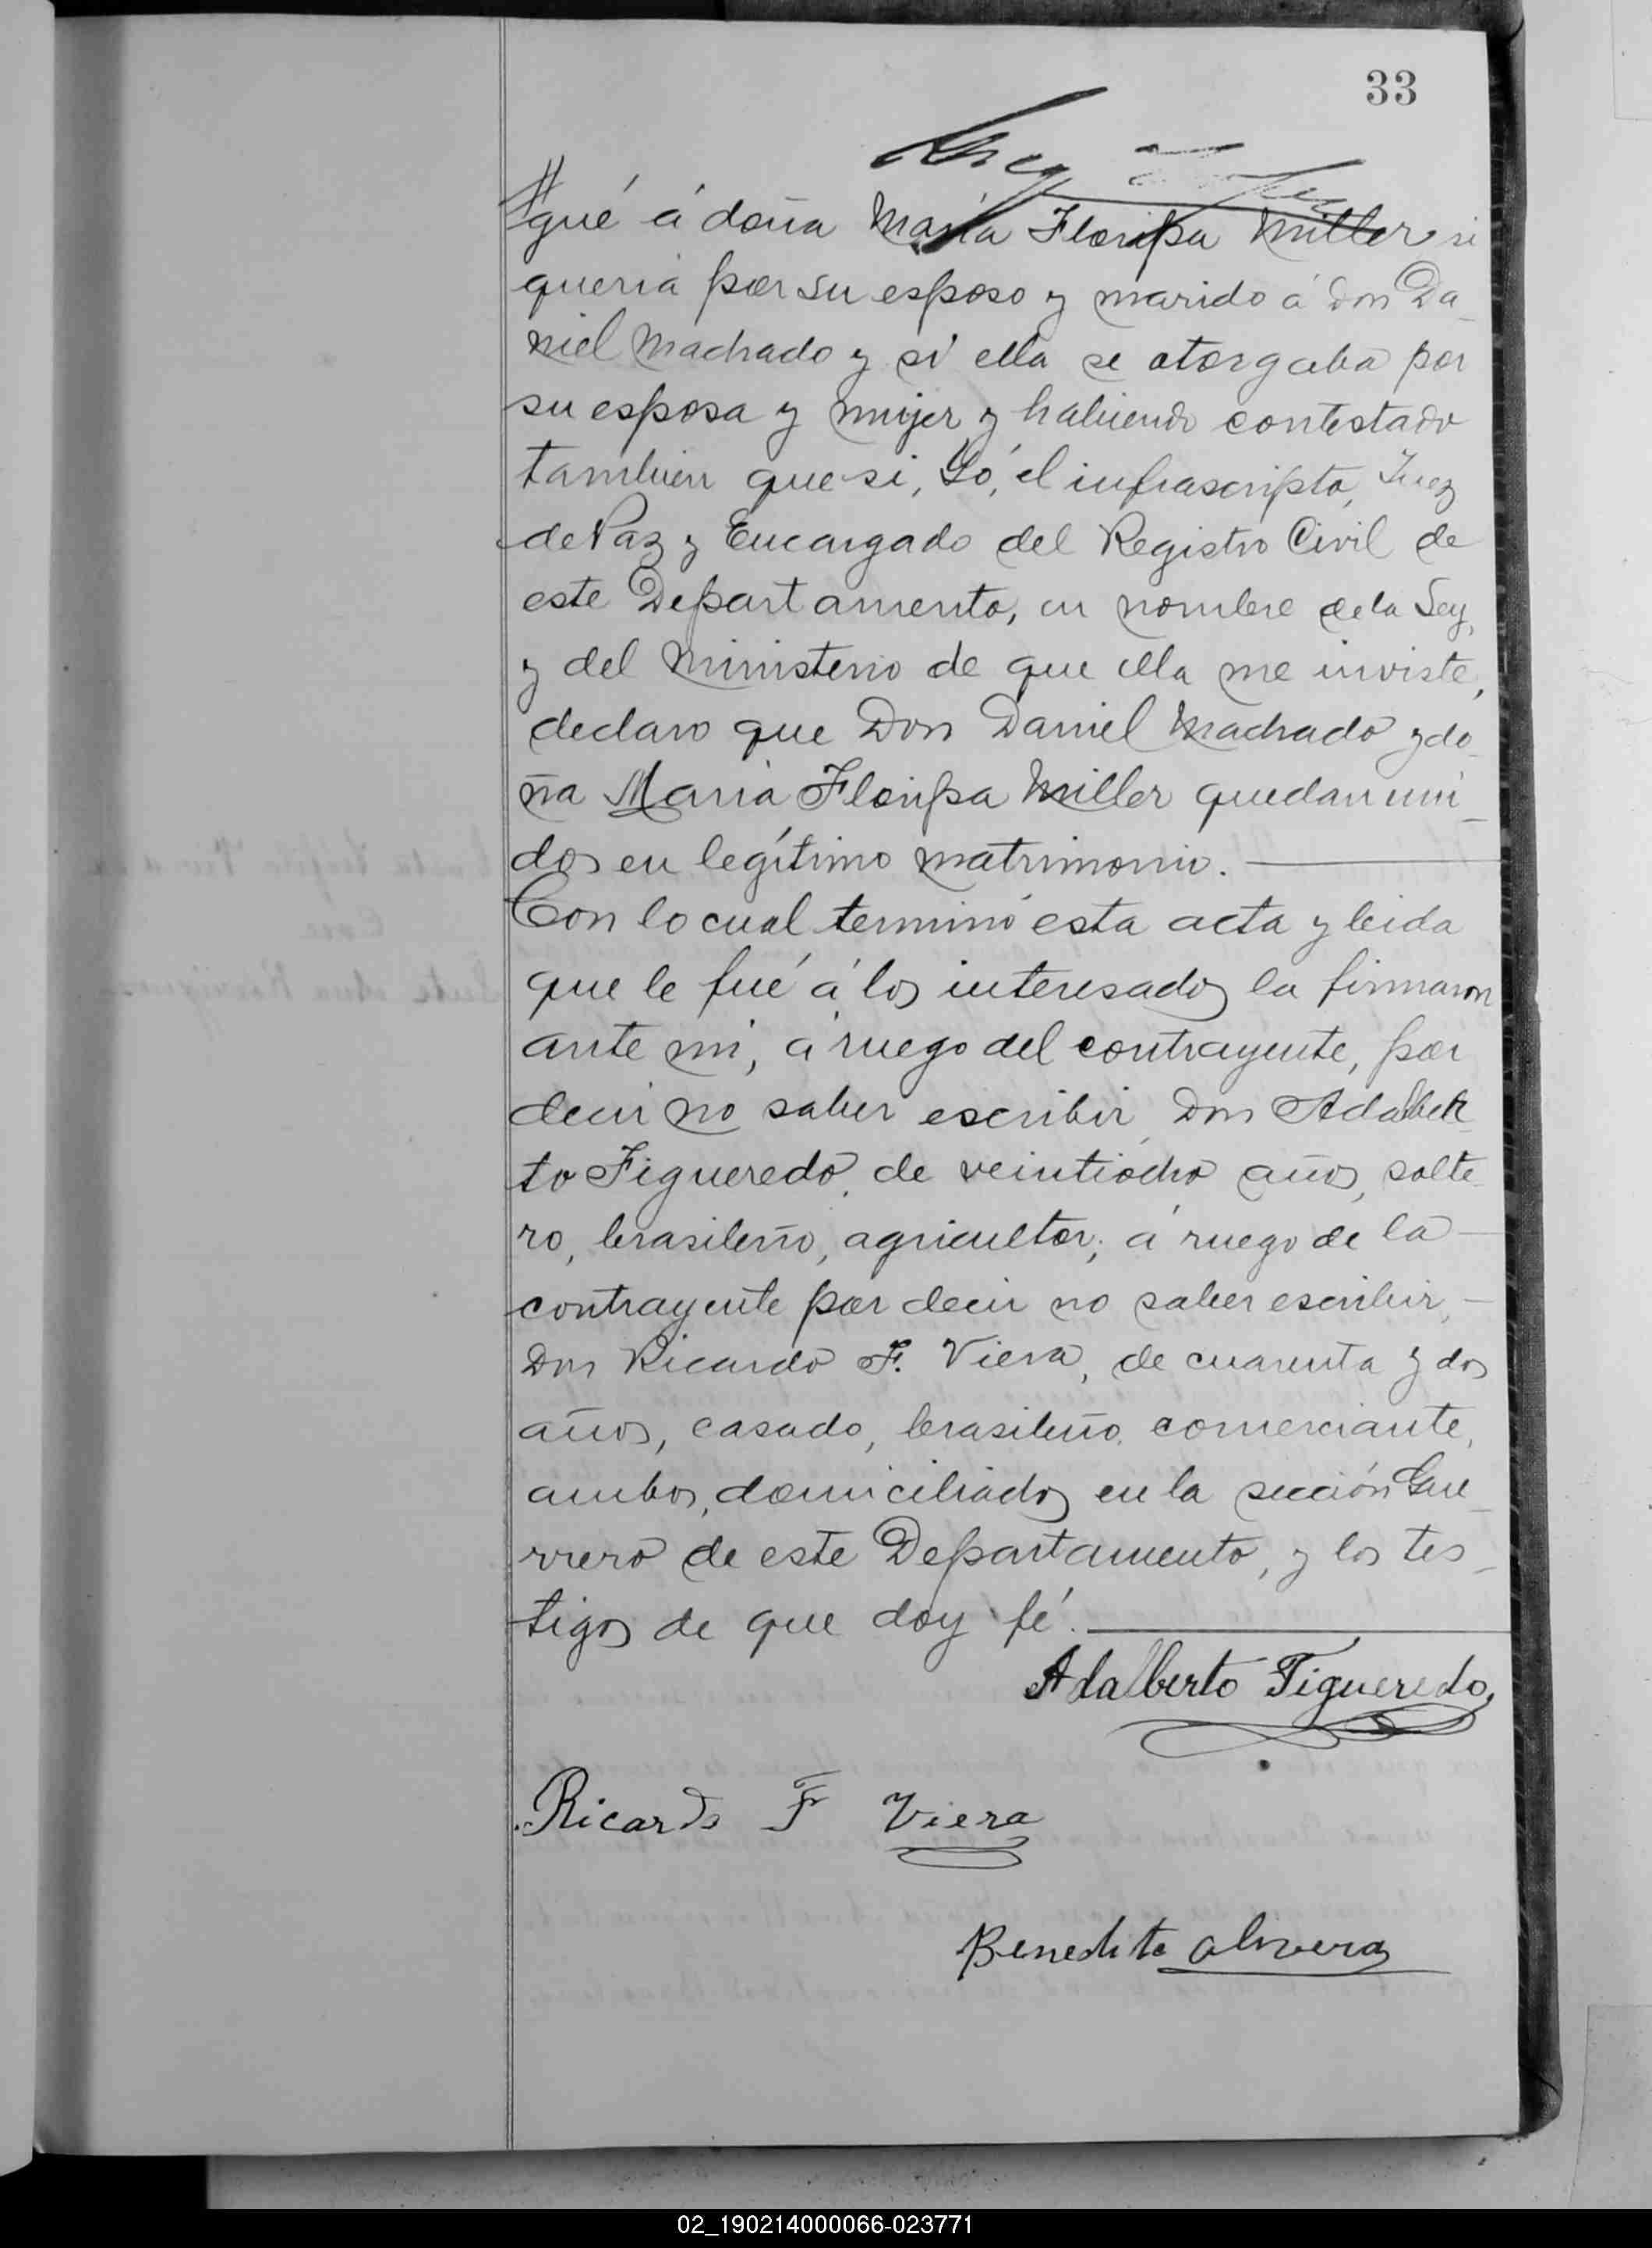 33
gué á doña Maria Floripa Miller si
queria por su esposo y marido á Don Da-
niel Machado y si ella se otorgaba por
su esposa y mujer y habiendo contestado
tambien que si, Yó, el infrascripto, Juez
de Paz y Encargado del Registro Civil de
este Departamento, en nombre de la Ley,
y del ministerio de que ella me inviste,
declaro que Don Daniel Machado y do-
ña Maria Floripa Miller quedan uni-
dos en legítimo matrimonio.
Con lo cual terminó esta acta y leida
que le fué á los interesados la firmaron
ante mi, á ruego del contrayente, por
decir no saber escribir, Don Adalber-
to Figueredo, de veintiocho años, solte-
ro, brasileño, agricultor; á ruego de la
contrayente por decir no saber escribir,
Don Ricardo F. Viera, de cuarenta y dos
años, casado, brasileño, comerciante,
ambos, domiciliados en la sección Gue-
rrero de este Departamento, y los tes-
tigos de que doy fé.
Adalberto Figueredo
Ricardo F Viera
Benedito Olivera
02_190214000066-023771